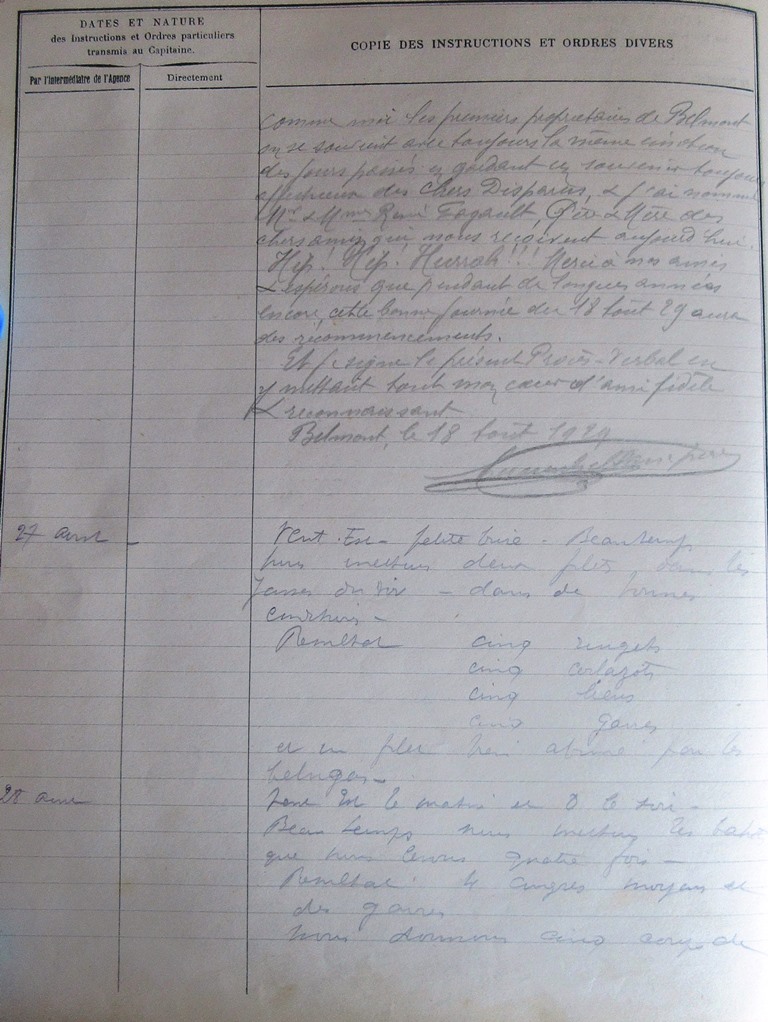 DATES ET NATURE
des Instructions et Ordres particuliers
transmis au Capitaine.
Par l'intermédiaire de l'Agence
Directement
COPIE DES INSTRUCTIONS ET ORDRES DIVERS
comme moi les premiers propriétaires de Belmont
on se souvient avec toujours la même émotion
des jours passés en gardant un souvenir toujours
affectueux des Chers Disparus, & j'ai nommé
Mr & Mme René Fagault, Père & Mère des
chers amis qui nous reçoivent aujourd'hui.
Hip! Hip. Hurrah!!! Merci à nos amis
& espérons que pendant de longues années
encore, cette bonne journée du 18 Août 29 aura
des recommencements.
Et je signe le présent Procès-Verbal en
y mettant tout mon cœur d'ami fidèle
& reconnaissant
Belmont, le 18 Août 1929
27 août
Vent Est - petite brise - Beau temps
nous mettons deux filets dans les
du - dans de bonnes
conditions -
Résultat cinq rougets
cinq
cinq
cinq
et un filet bien abimé par les
belugas -
28 août
Vent Est le matin et O le soir -
Beau temps nous mettons les
que nous levons quatre fois -
Résultat 4 congres moyens et
des
Nous donnons cinq coups de